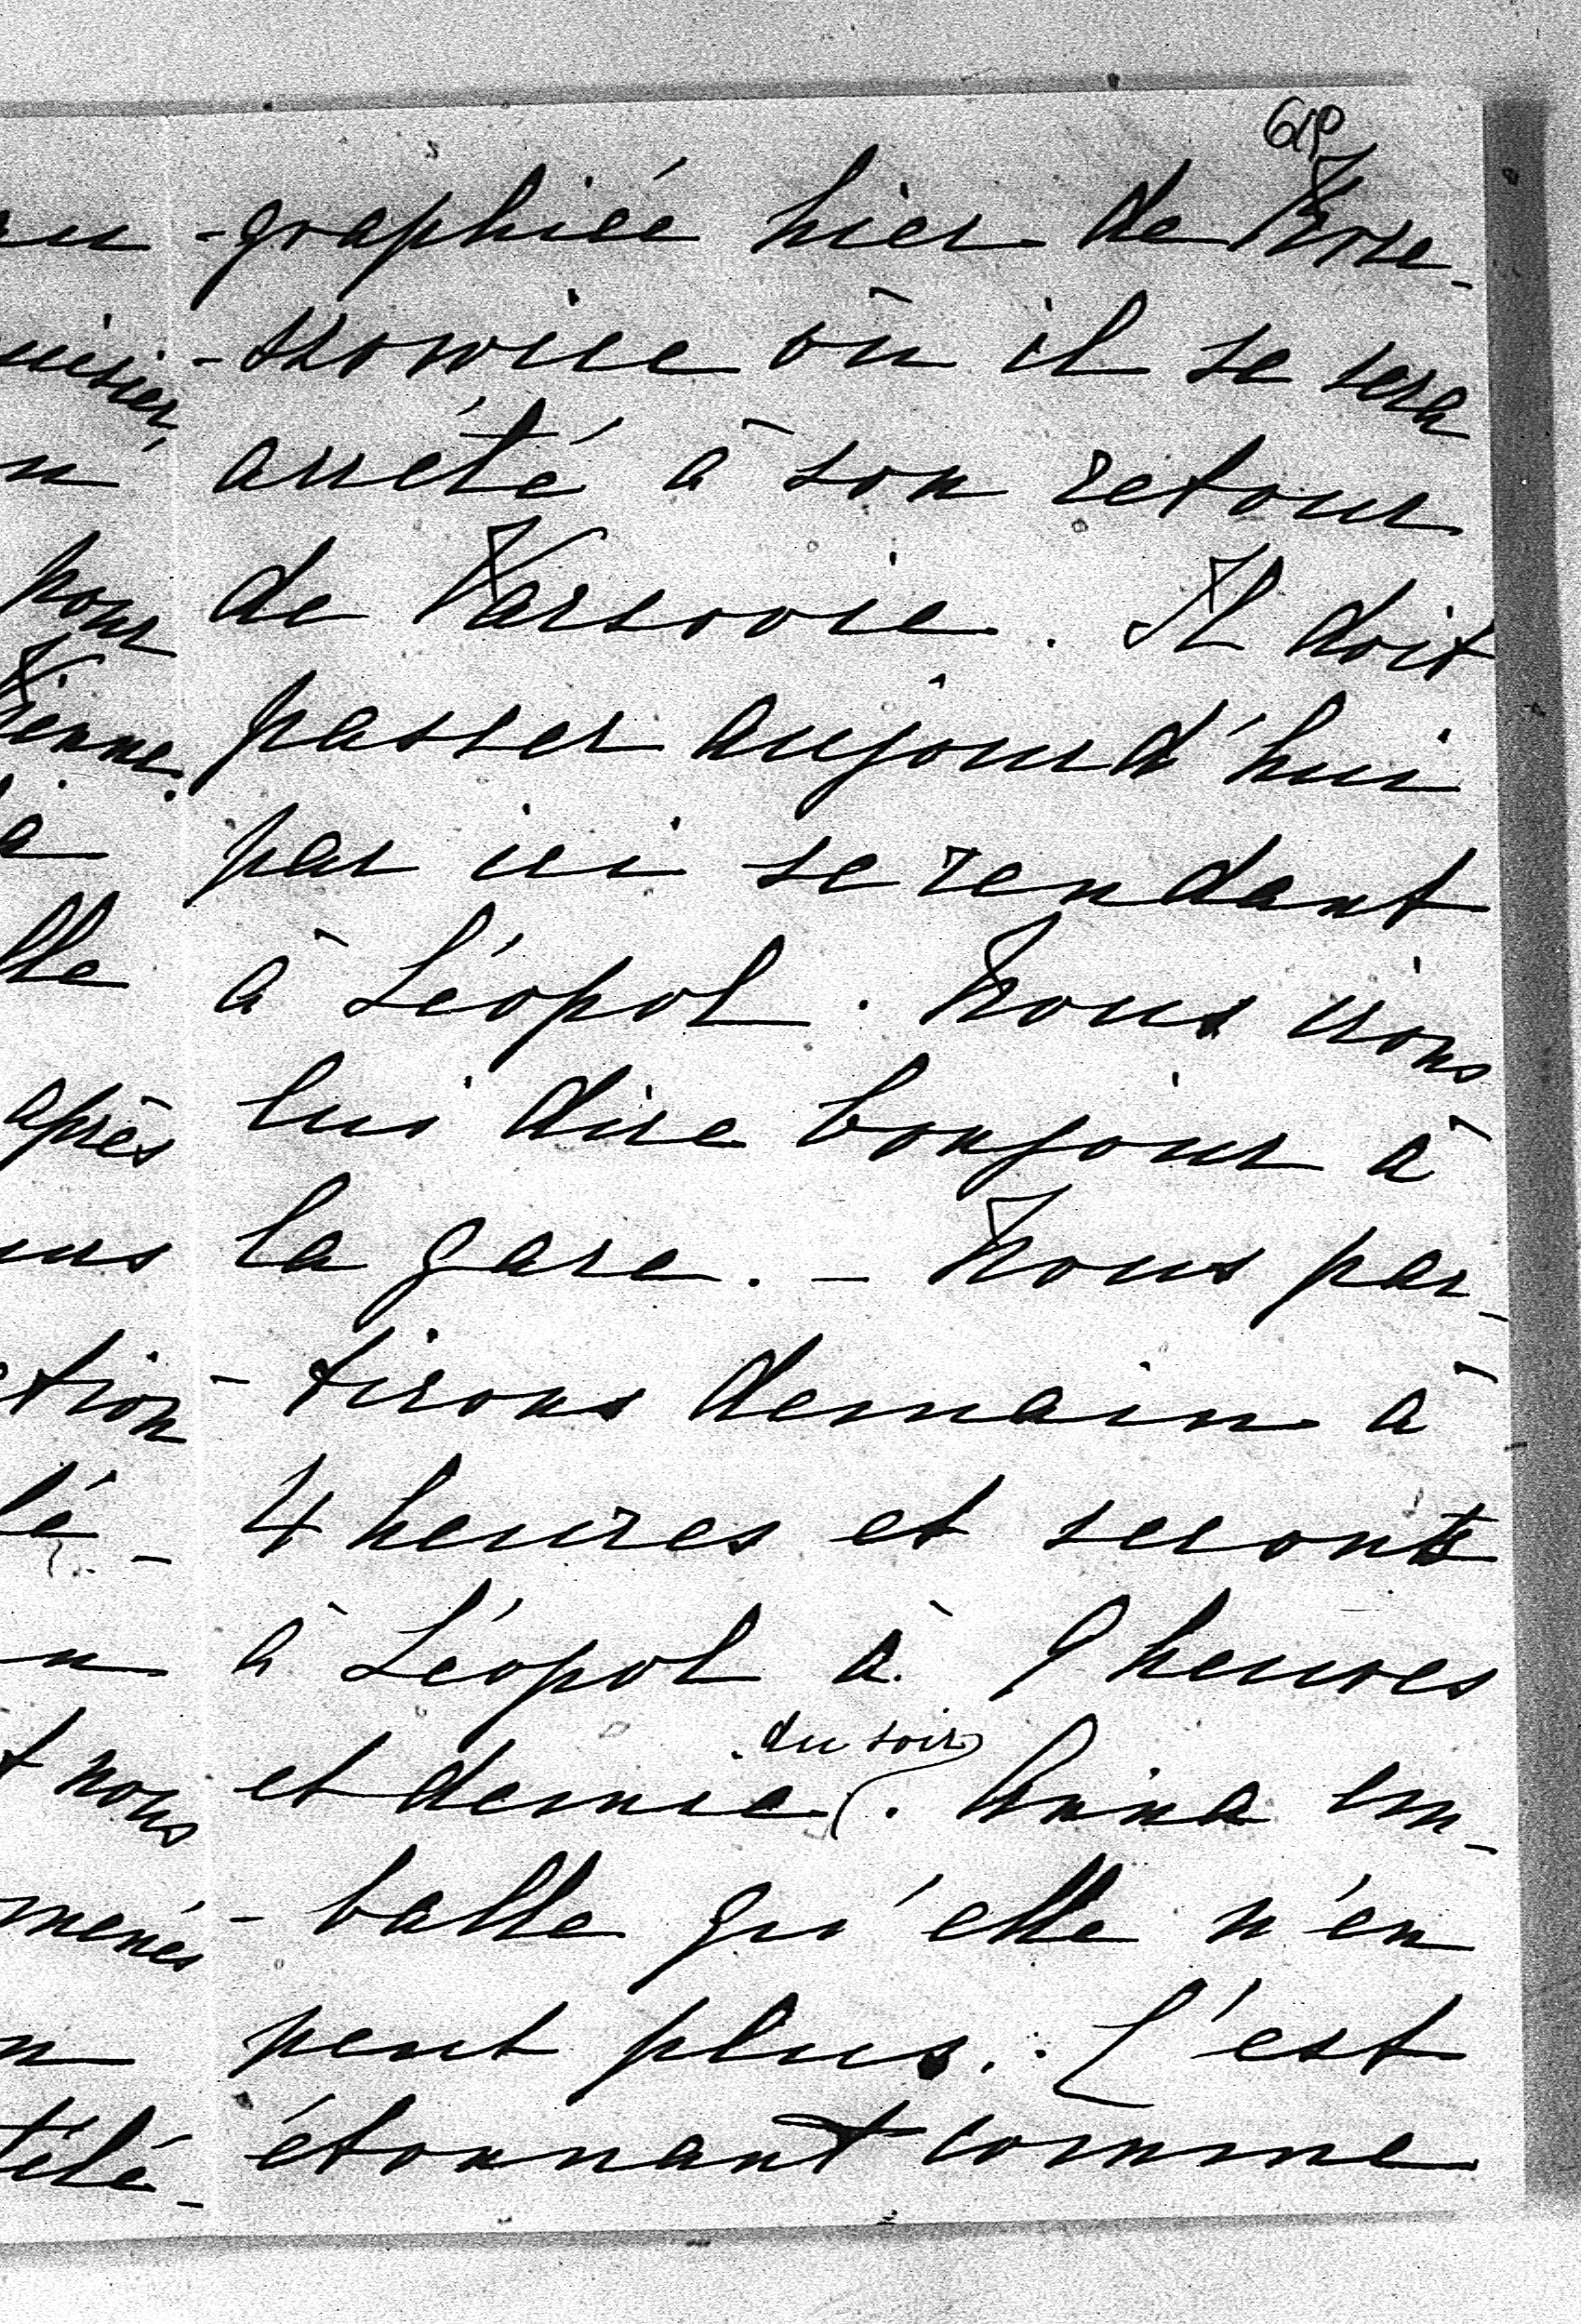 -graphiée hier de Krze-
-szowice où il se sera
arrêté à son retour
de Varsovie. Il doit
passer aujourd'hui
par ici se rendant
à Léopol. Nous irons
lui dire bonjour à
la gare. – Nous par-
-tirons demain à
4 heures et serons
à Léopol à 9 heures
et demie du soir. Anna em-
-balle qu'elle n'en
peut plus. C'est
étonnant comme